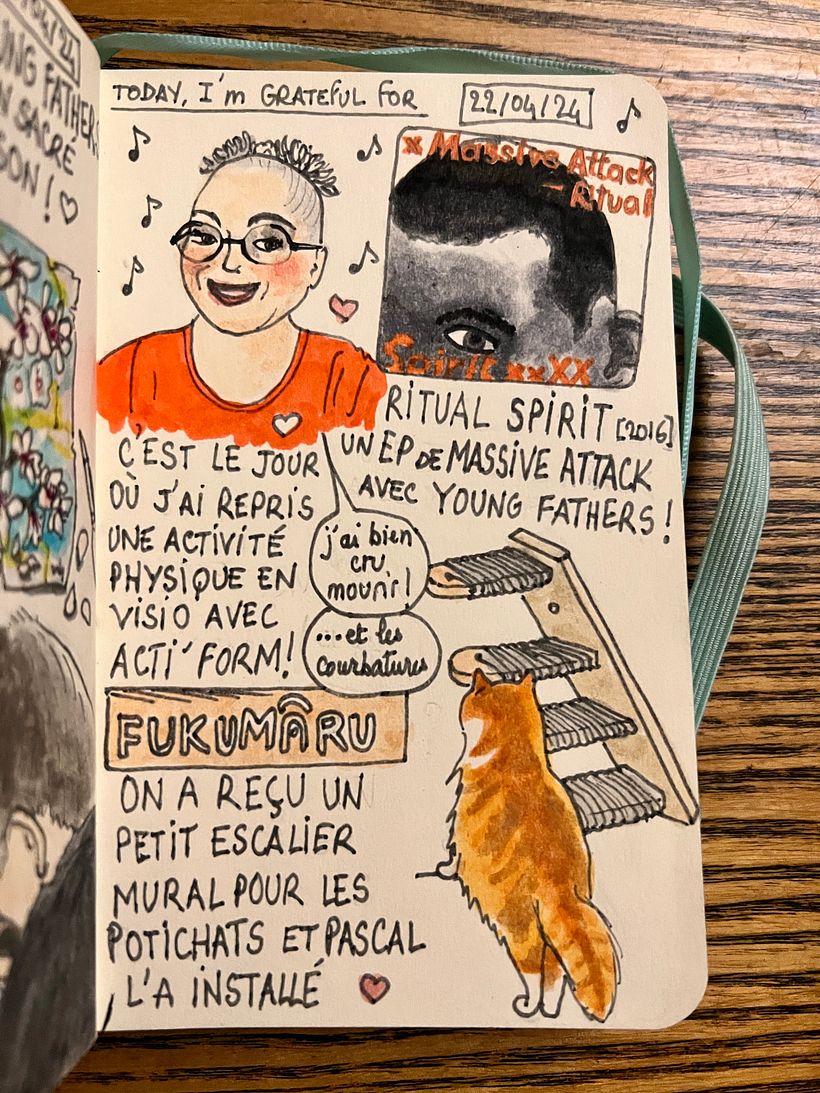 TODAY, I'm GRATEFUL FOR
22/04/24
x Massive Attack
- Ritual
Spirit xxXX
RITUAL SPIRIT [2016]
UN EP DE MASSIVE ATTACK
AVEC YOUNG FATHERS !
C'EST LE JOUR
OÙ J'AI REPRIS
UNE ACTIVITÉ
PHYSIQUE EN
VISIO AVEC
ACTI'FORM!
j'ai bien
cru
mourir!
...et les
courbatures
FUKUMÂRU
ON A REÇU UN
PETIT ESCALIER
MURAL POUR LES
POTICHATS ET PASCAL
L'A INSTALLÉ
FATHERS
SACRÉ
SON !